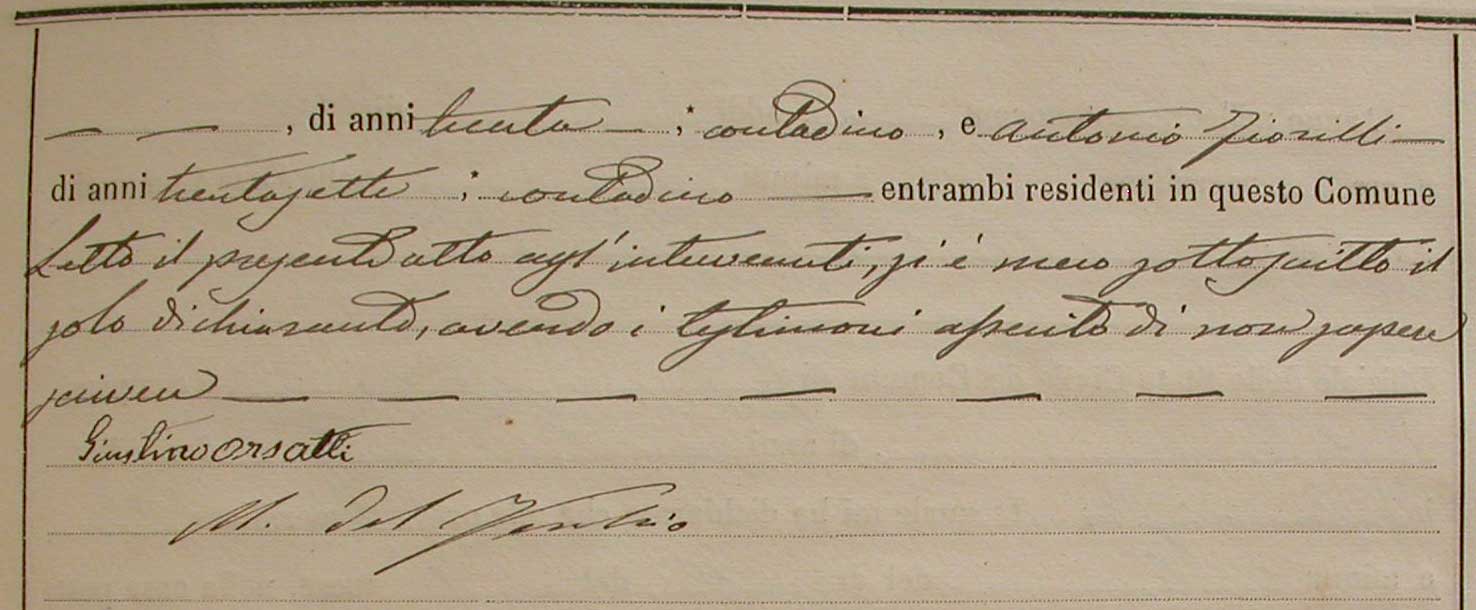 — — , di anni trenta — ; contadino , e Antonio Fiorilli —
di anni trentasette ; contadino — entrambi residenti in questo Comune
Letto il presente atto agl'intervenuti, si è meco sottoscritto il
solo dichiarante, avendo i testimoni asserito di non sapere
scrivere — — — — — — —
Giustino Orsatti
M. Del